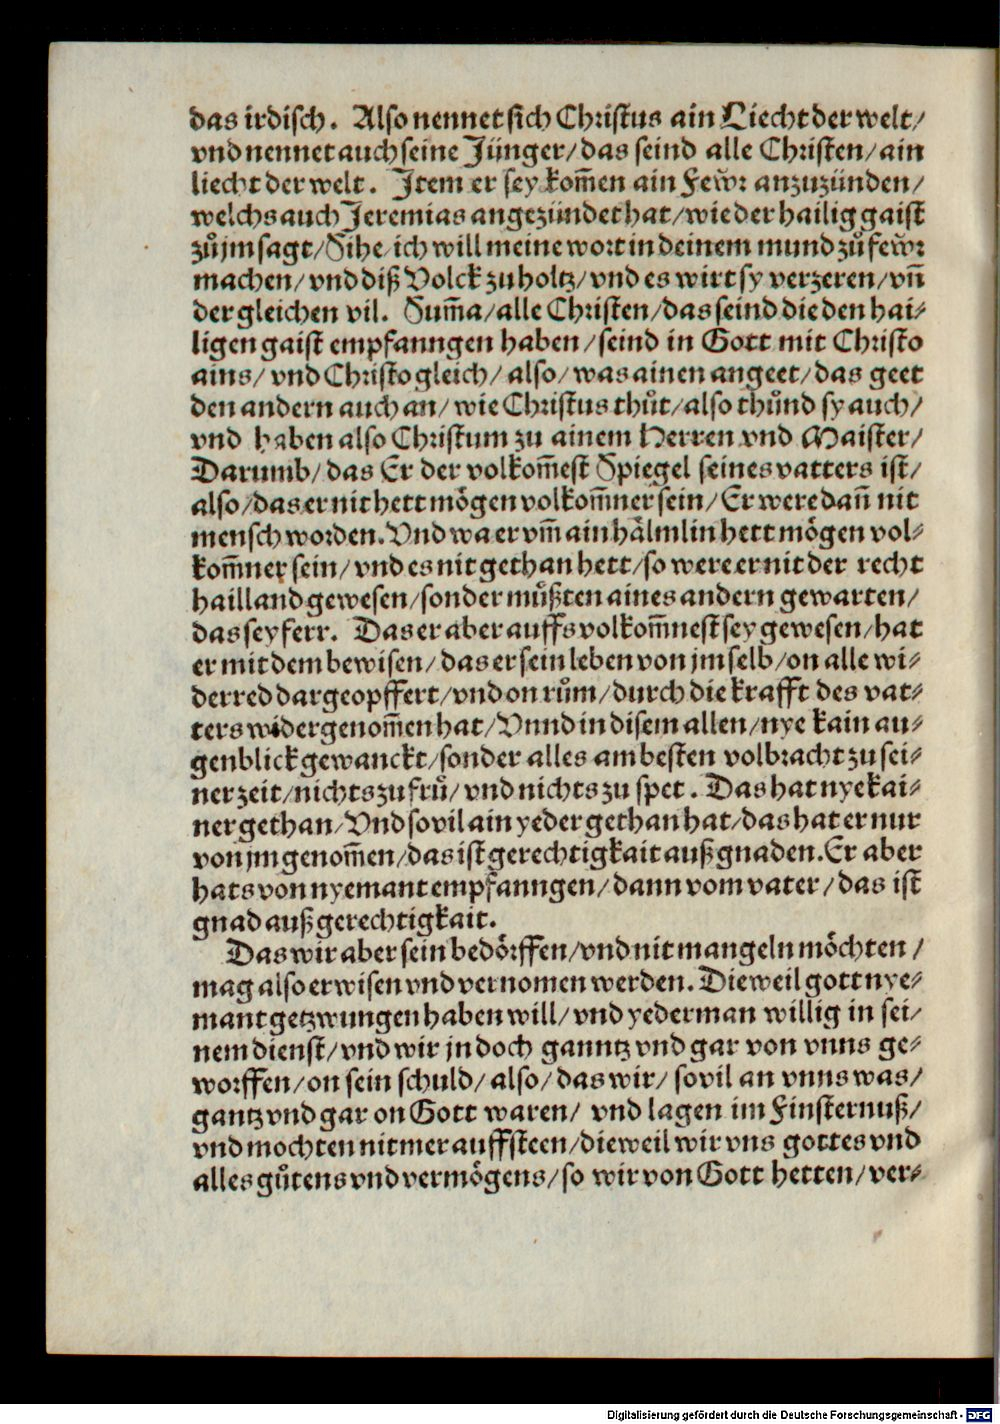 das irdisch. Also nennet sich Christus ain Liecht der welt/
vnd nennet auch seine Jünger/das seind alle Christen/ain
liecht der welt. Item er sey kom̄en ain Fewͦr anzuzünden/
welchs auch Jeremias angezündet hat/wie der hailig gaist
zuͦ jm sagt/Sihe/ich will meine wort in deinem mund zuͦ fewͦr
machen/vnd diß Volck zu holtz/vnd es wirt sy verzeren/vn̄
der gleichen vil. Sum̄a/alle Christen/das seind die den hai⸗
ligen gaist empfanngen haben/seind in Gott mit Christo
ains/vnd Christo gleich/also/was ainen angeet/das geet
den andern auch an/wie Christus thuͦt/also thuͦnd sy auch/
vnd haben also Christum zu ainem Herren vnd Maister/
Darumb/das Er der volkom̄est Spiegel seines vatters ist/
also/das er nit hett mögen volkom̄ner sein/Er were dan̄ nit
mensch worden. Vnd wa er vm̄ ain hälmlin hett mögen vol⸗
kom̄ner sein/vnd es nit gethan hett/so were er nit der recht
hailland gewesen/sonder muͦßten aines andern gewarten/
das sey ferr. Das er aber auffs volkom̄nest sey gewesen/hat
er mit dem bewisen/das er sein leben von jm selb/on alle wi⸗
derred dargeopffert/vnd on ruͦm/durch die krafft des vat⸗
ters widergenom̄en hat/Vnnd in disem allen/nye kain au⸗
genblick gewanckt/sonder alles am besten volbracht zu sei⸗
ner zeit/nichts zu fruͦ/vnd nichts zu spet. Das hat nye kai⸗
ner gethan/Vnd sovil ain yeder gethan hat/das hat er nur
von jm genom̄en/das ist gerechtigkait auß gnaden. Er aber
hats von nyemant empfanngen/dann vom vater/das ist
gnad auß gerechtigkait.
Das wir aber sein bedörffen/vnd nit mangeln möchten/
mag also erwisen vnd vernomen werden. Dieweil gott nye⸗
mant getzwungen haben will/vnd yederman willig in sei⸗
nem dienst/vnd wir jn doch ganntz vnd gar von vnns ge⸗
worffen/on sein schuld/also/das wir/sovil an vnns was/
gantz vnd gar on Gott waren/vnd lagen im Finsternuß/
vnd mochten nit mer auffsteen/dieweil wir vns gottes vnd
alles guͦtens vnd vermögens/so wir von Gott hetten/ver⸗
Digitalisierung gefördert durch die Deutsche Forschungsgemeinschaft - DFG